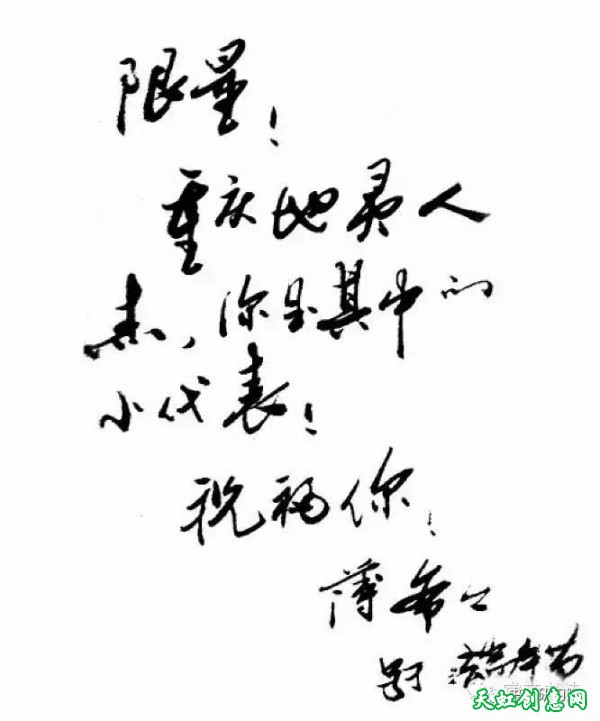 限量！
重庆地灵人
杰，你是其中的
小代表！
祝福你！
薄希
天虹创意网